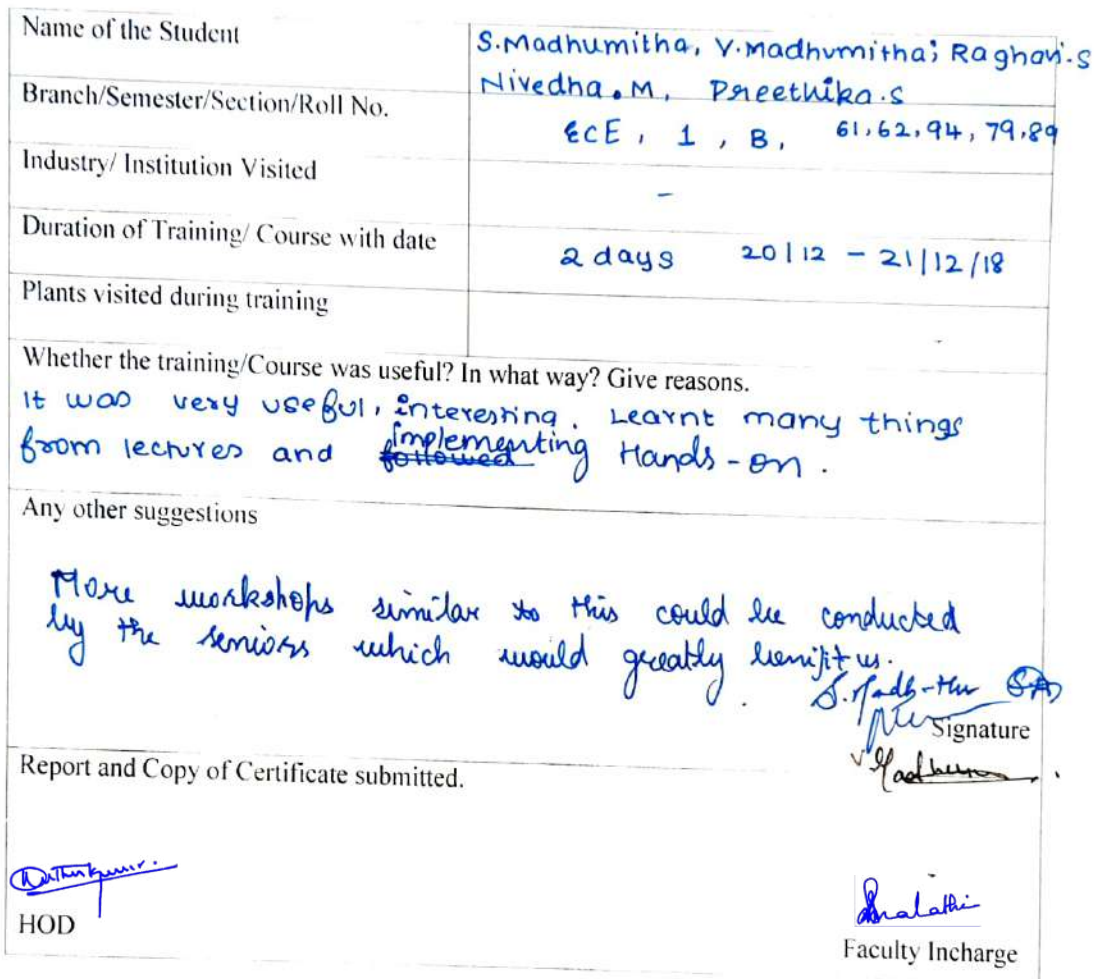 Name of the Student
S.Madhumitha, V.Madhumitha; Raghavi.S
Nivedha.M, Preethika.S
Branch/Semester/Section/Roll No.
ECE, 1, B, 61,62,94,79,89
Industry/ Institution Visited
-
Duration of Training/ Course with date
2 days 20|12 - 21|12/18
Plants visited during training
-
Whether the training/Course was useful? In what way? Give reasons.
It was very useful, interesting. Learnt many things
from lectures and followed implementing Hands-on.
Any other suggestions
More workshops similar to this could be conducted
by the seniors which would greatly benifit us.
Signature
Report and Copy of Certificate submitted.
HOD
Malathi
Faculty Incharge